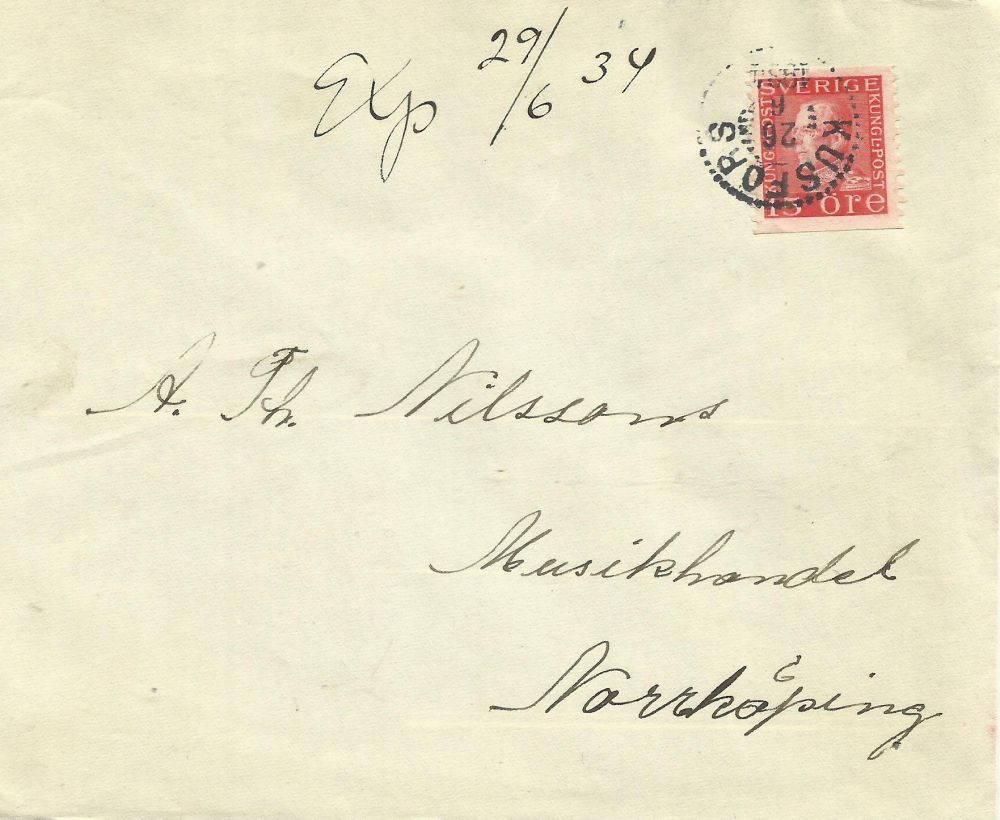 Exp 29/6 34
SVERIGE
KUNGL. POST
KUNGL. POST
15 öre
KUSFORS
26
6
A. Th. Nilssons
Musikhandel
Norrköping